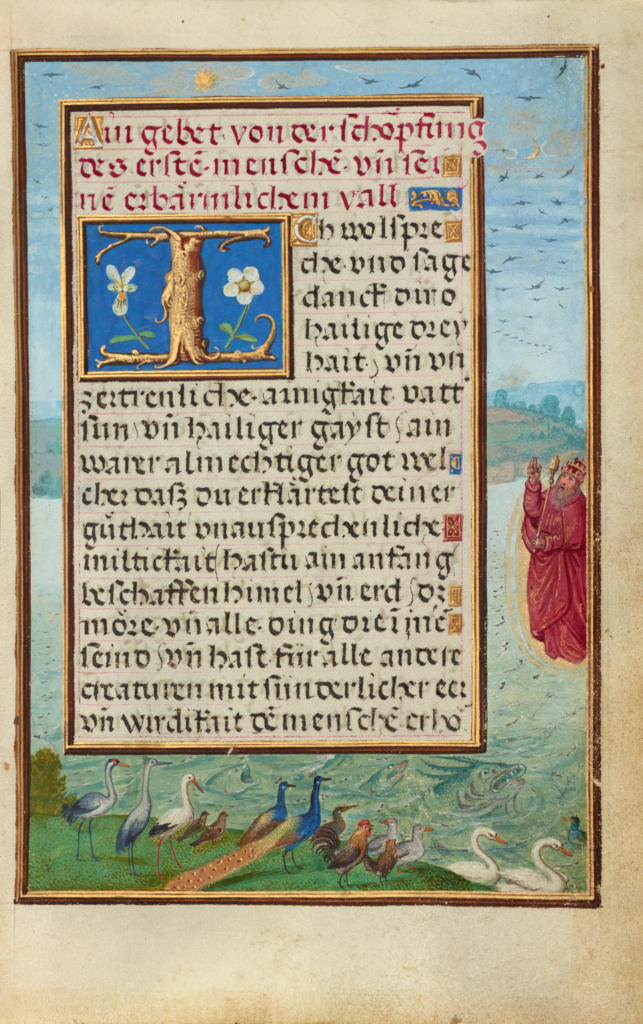 Ain gebet von der schöpfung
des erstē menschē vn̄ sei
nē erbärmlichem vall
Ich wolspre
che vnd sage
danck dir o
hailige drey
hait / vn̄ vn
zertrenliche ainigkait vatt
sun / vn̄ hailiger gayst / ain
warer almechtiger got wel
cher dasz du erklärtest deiner
gůthait vnausprechenliche
miltickait / hastu am anfang
beschaffen himel / vn̄ erd / dz
möre vn̄ alle ding die ī inē
seind / vn̄ hast für alle andere
creaturen mit sunderlicher eer
vn̄ wirdikait dē menschē erhö